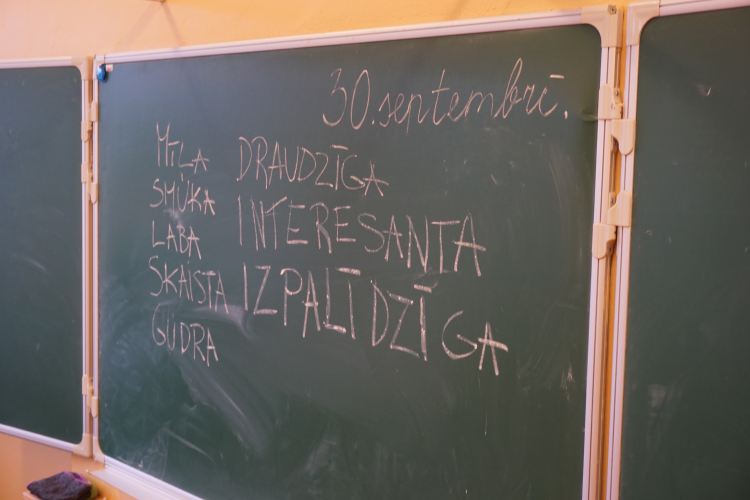 30.septembrī.
MĪĻA
SMUKA
LABA
SKAISTA
GUDRA
DRAUDZĪGA
INTERESANTA
IZPALĪDZĪGA